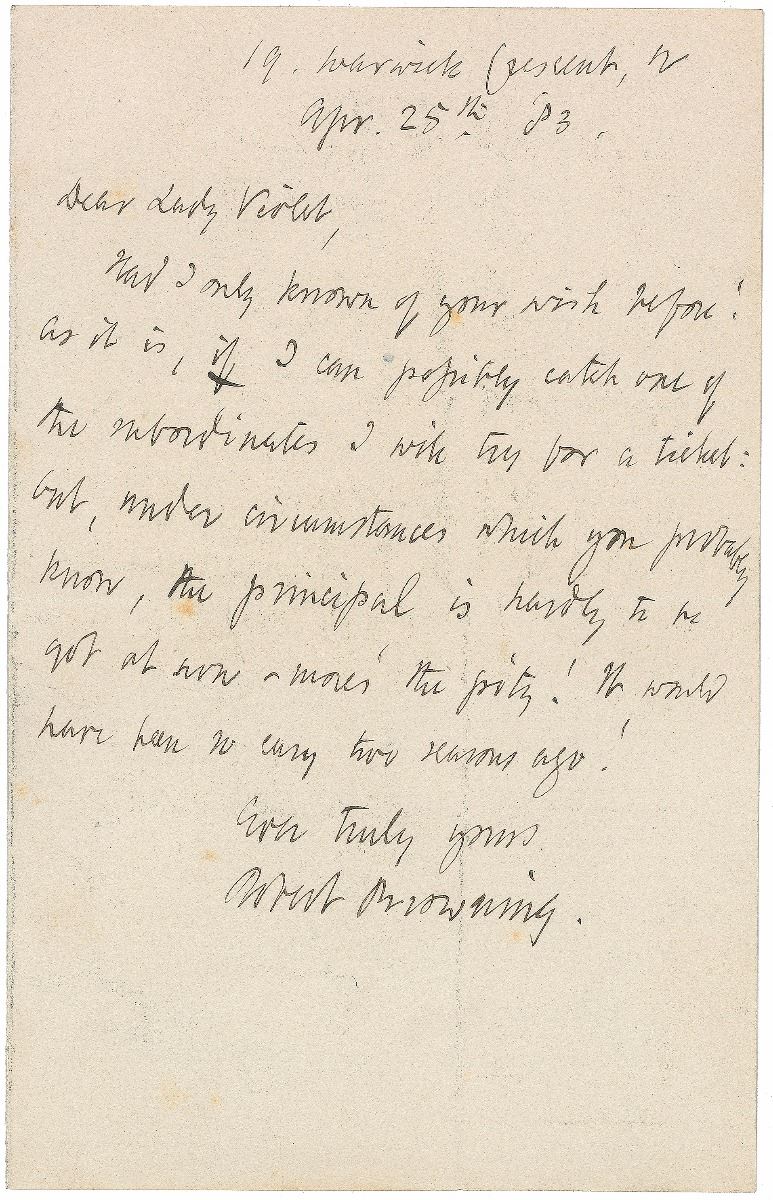 19. Warwick Crescent, W
Apr. 25th '83.
Dear Lady Violet,
Had I only known of your wish before!
as it is, if I can possibly catch one of
the subordinates I will try for a ticket:
but, under circumstances which you probably
know, the principal is hardly to be
got at now - more's the pity! It would
have been so easy two seasons ago!
Ever truly yours
Robert Browning.